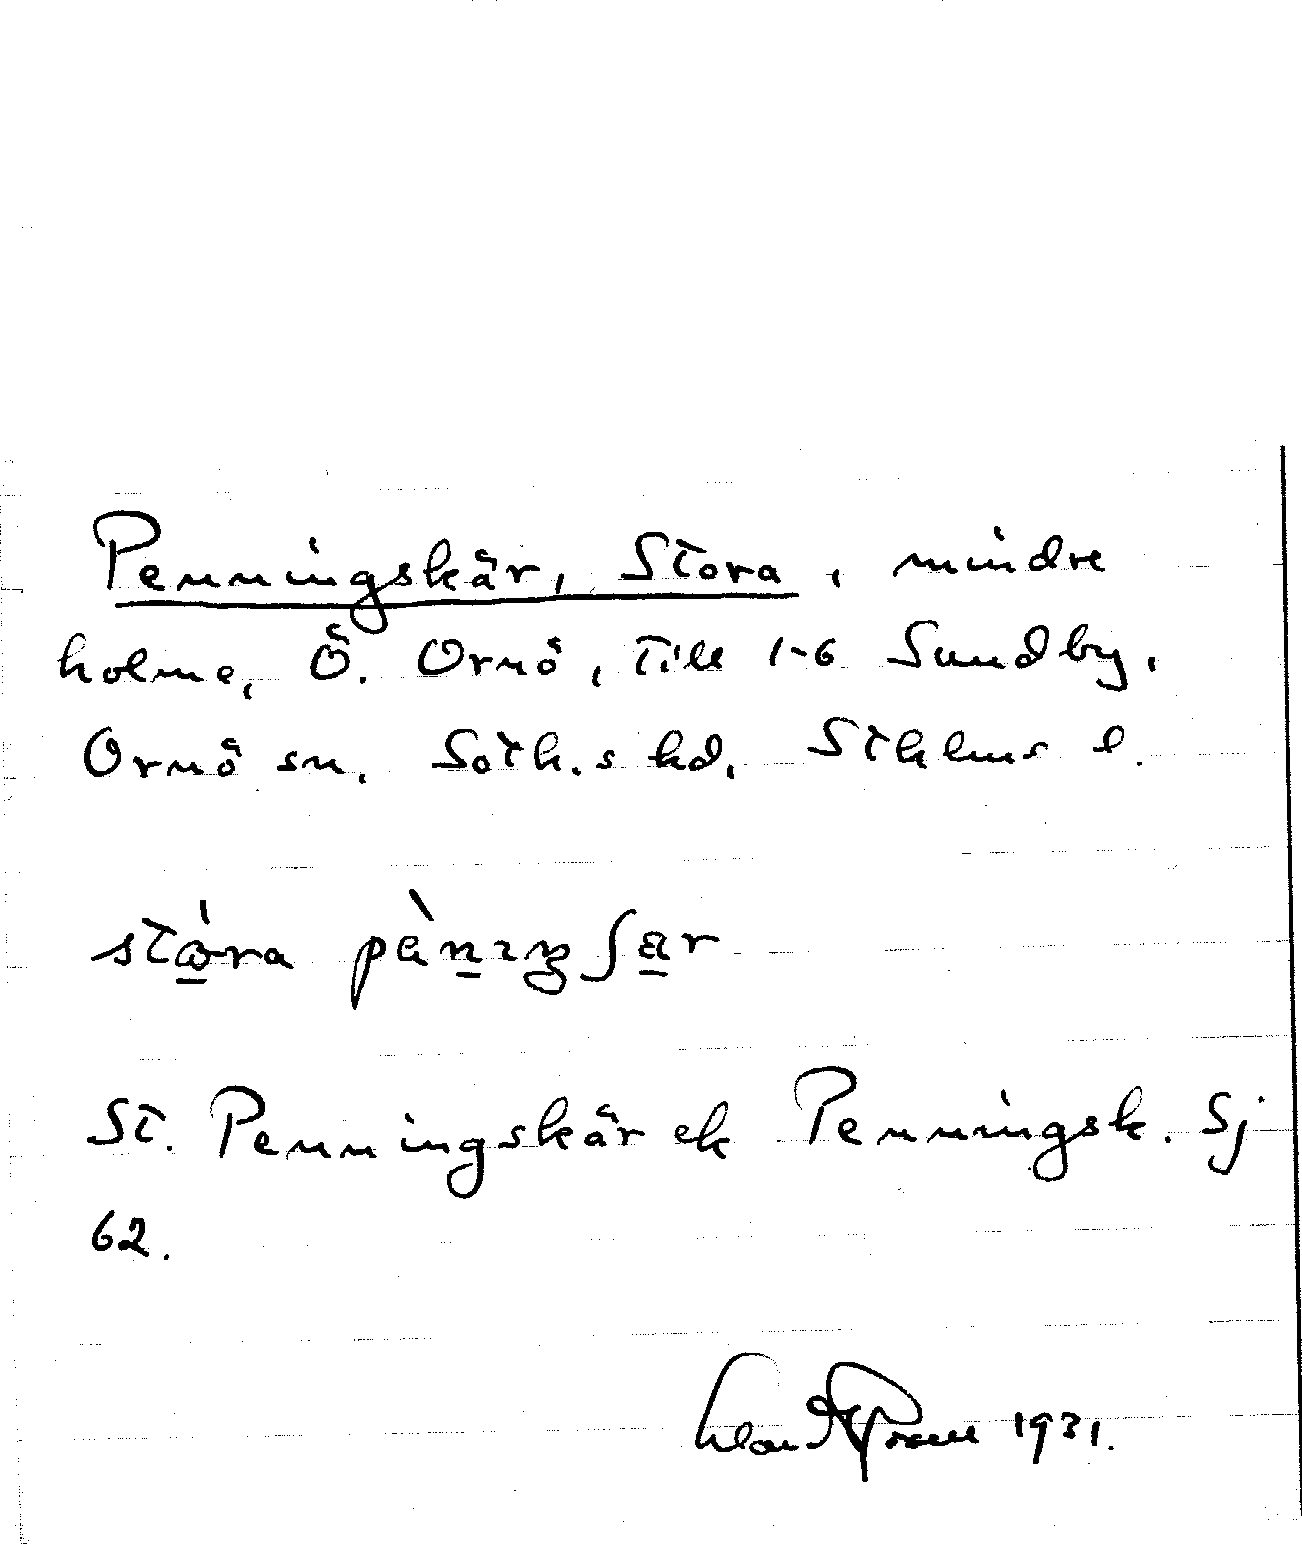 Penningskär, Stora, mindre
holme, Ö. Ornö, till 1-6 Sundby,
Ornö sn. Soth.s hd. Sthlms l.
St. Penningskär ek Penningsk. Sj
62.
1931.